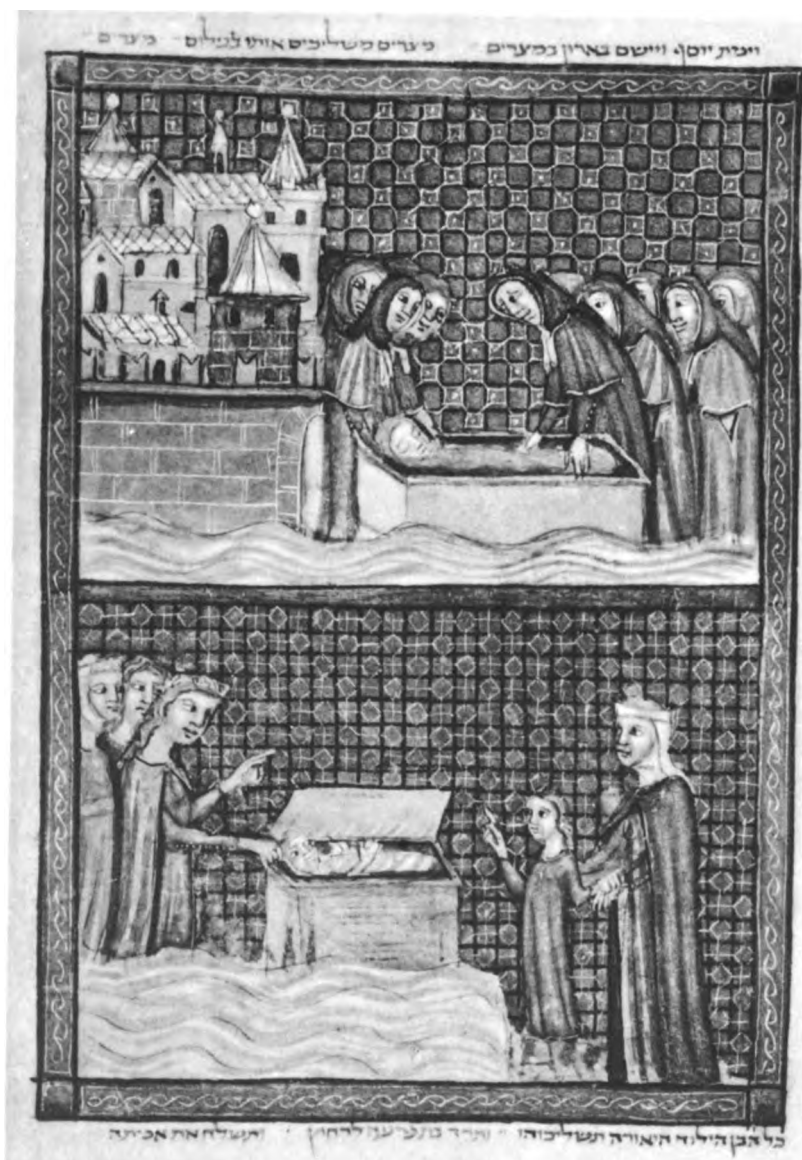 וימת יוסף ויישם בארון במצרים מצרים משליכים אותו לנילוס מצרים
כל הבן הילוד היאורה תשליכוהו ותרד בת פרעה לרחוץ ותשלח את אמתה